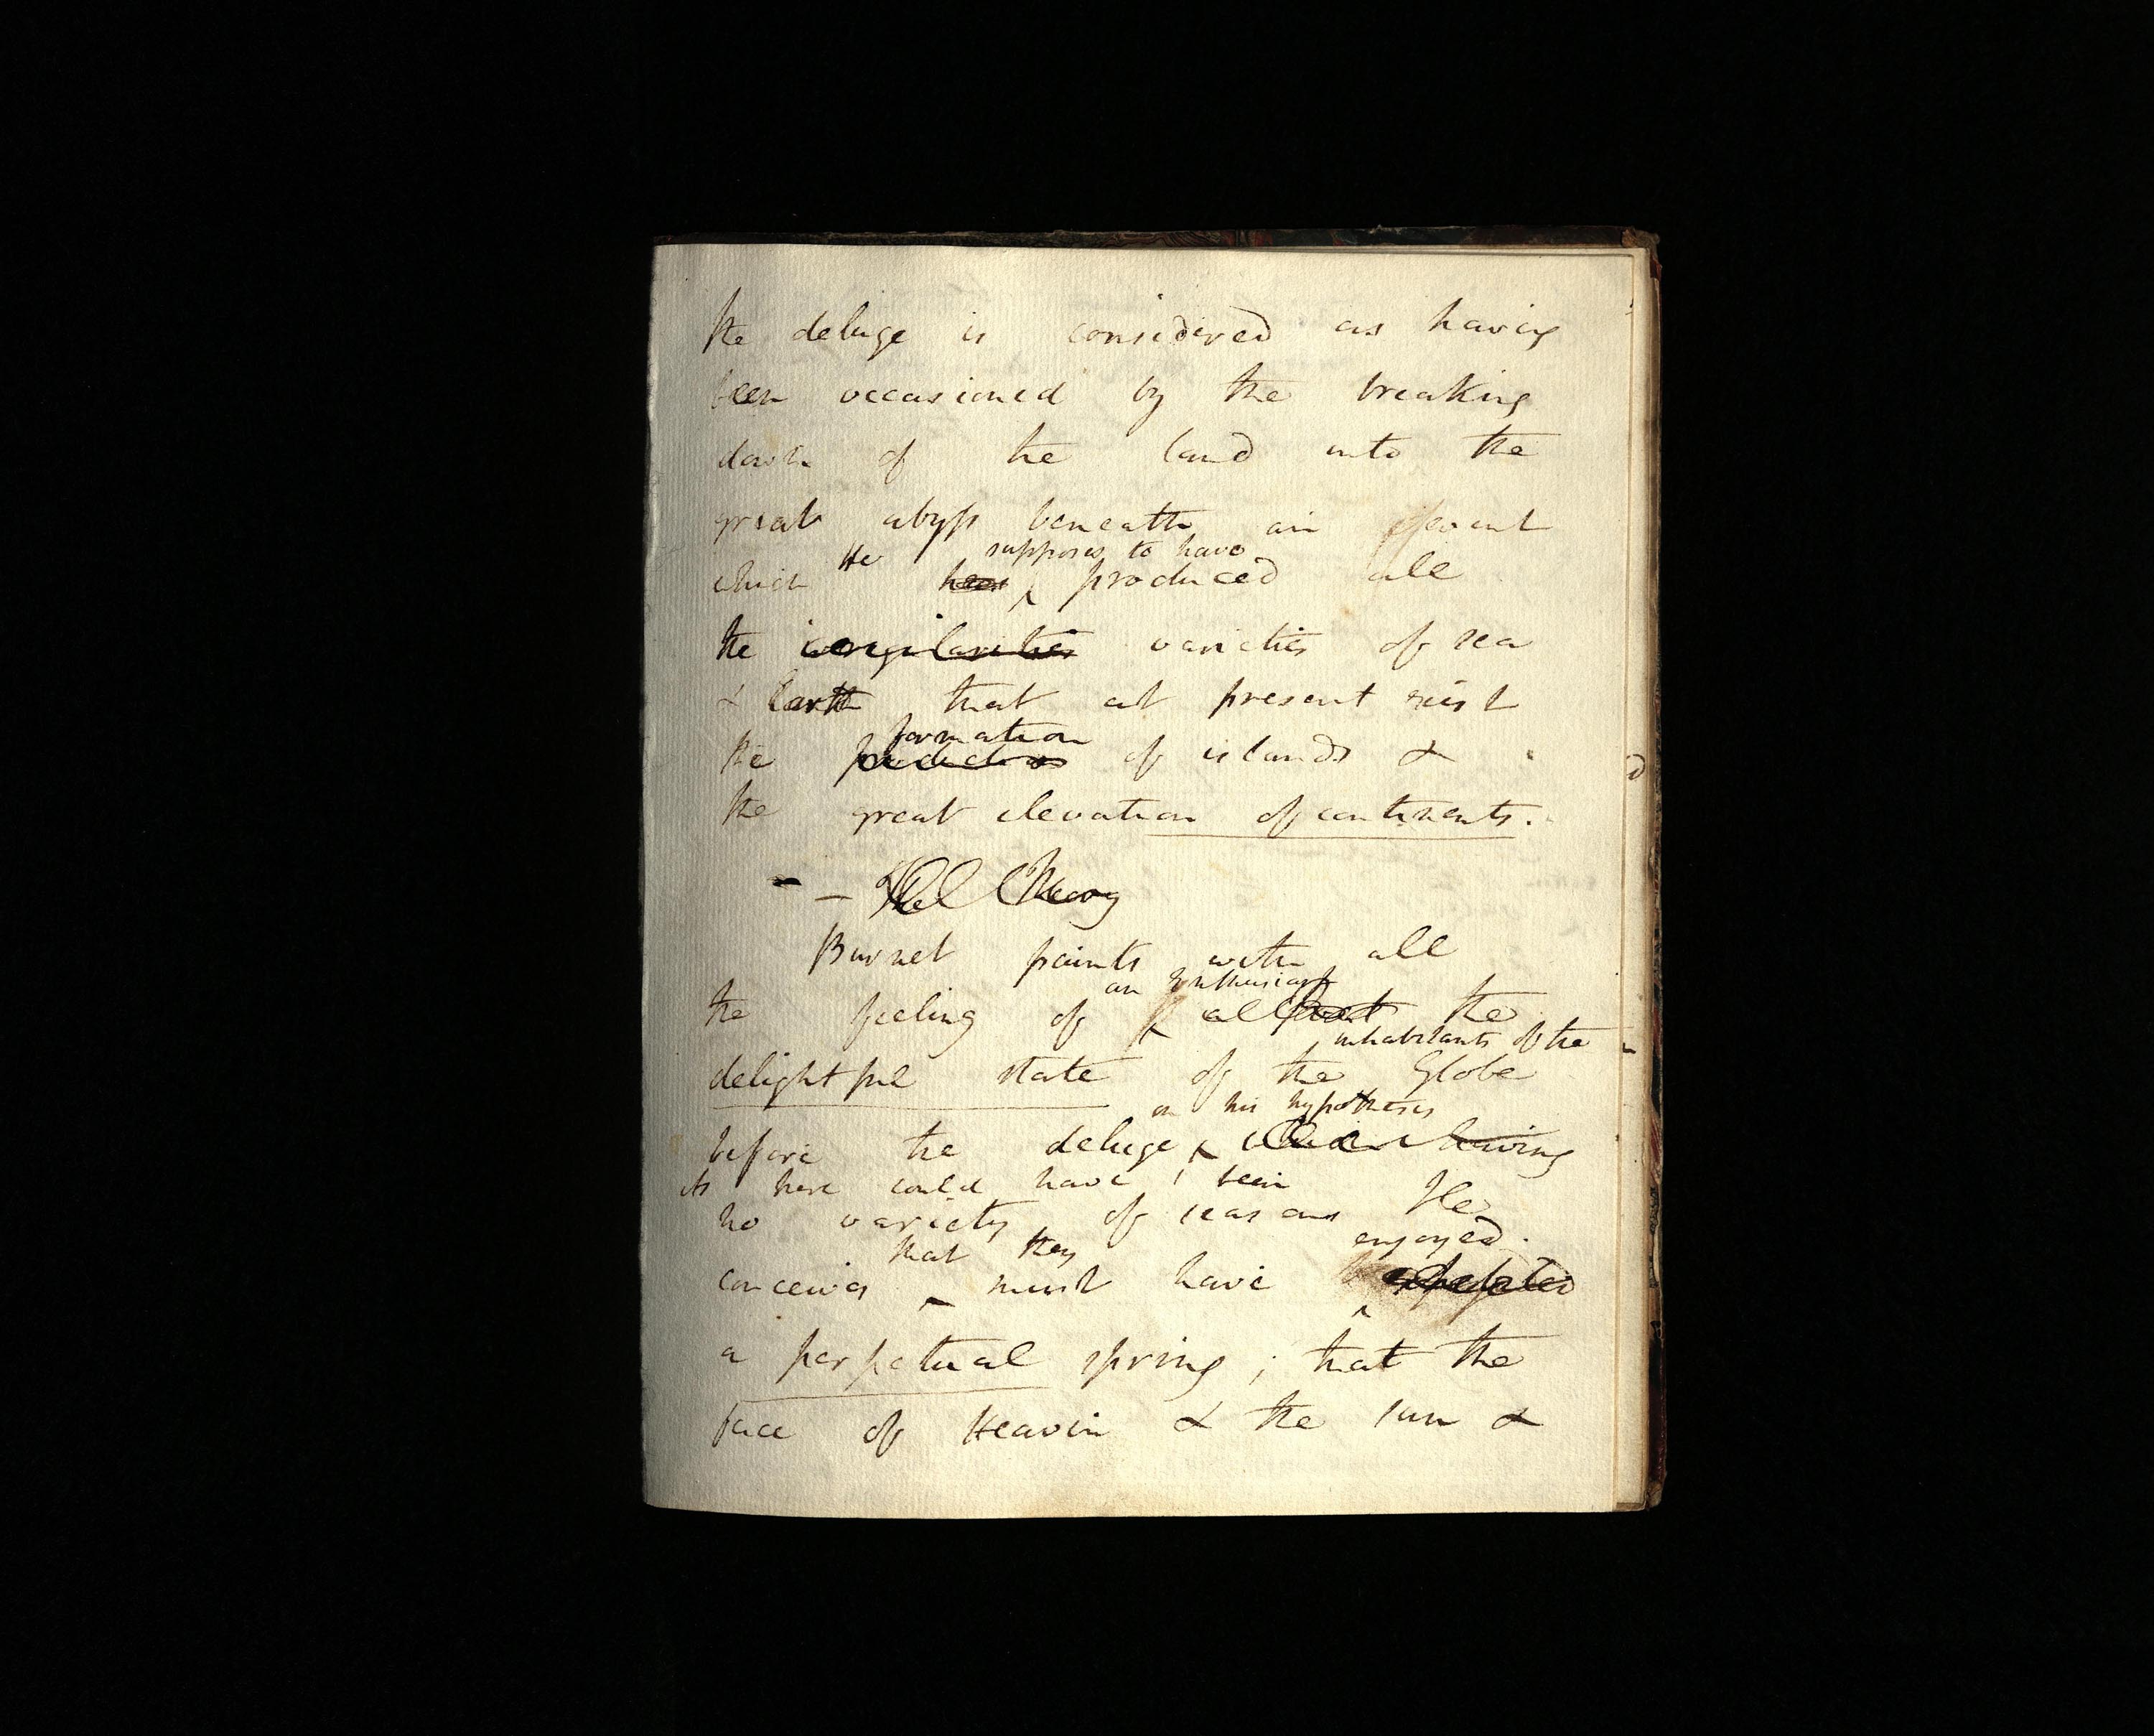 the deluge is considered as having
been occasioned by the breaking
down of the land into the
great abyss beneath an event
He supposes to have
which has produced all
the irregularities varieties of sea
& Earth that at present exist
formation
the production of islands &
the great elevation of continents.
– – The Theory
Burnet paints with all
an Enthusiast
the feeling of the
inhabitants of the
delightful state of the Globe
on his hypothesis
before the deluge, when having
As there could have been
no variety of seasons He
that they enjoyed.
conceives must have
a perpetual spring; that the
face of Heaven & the sun &